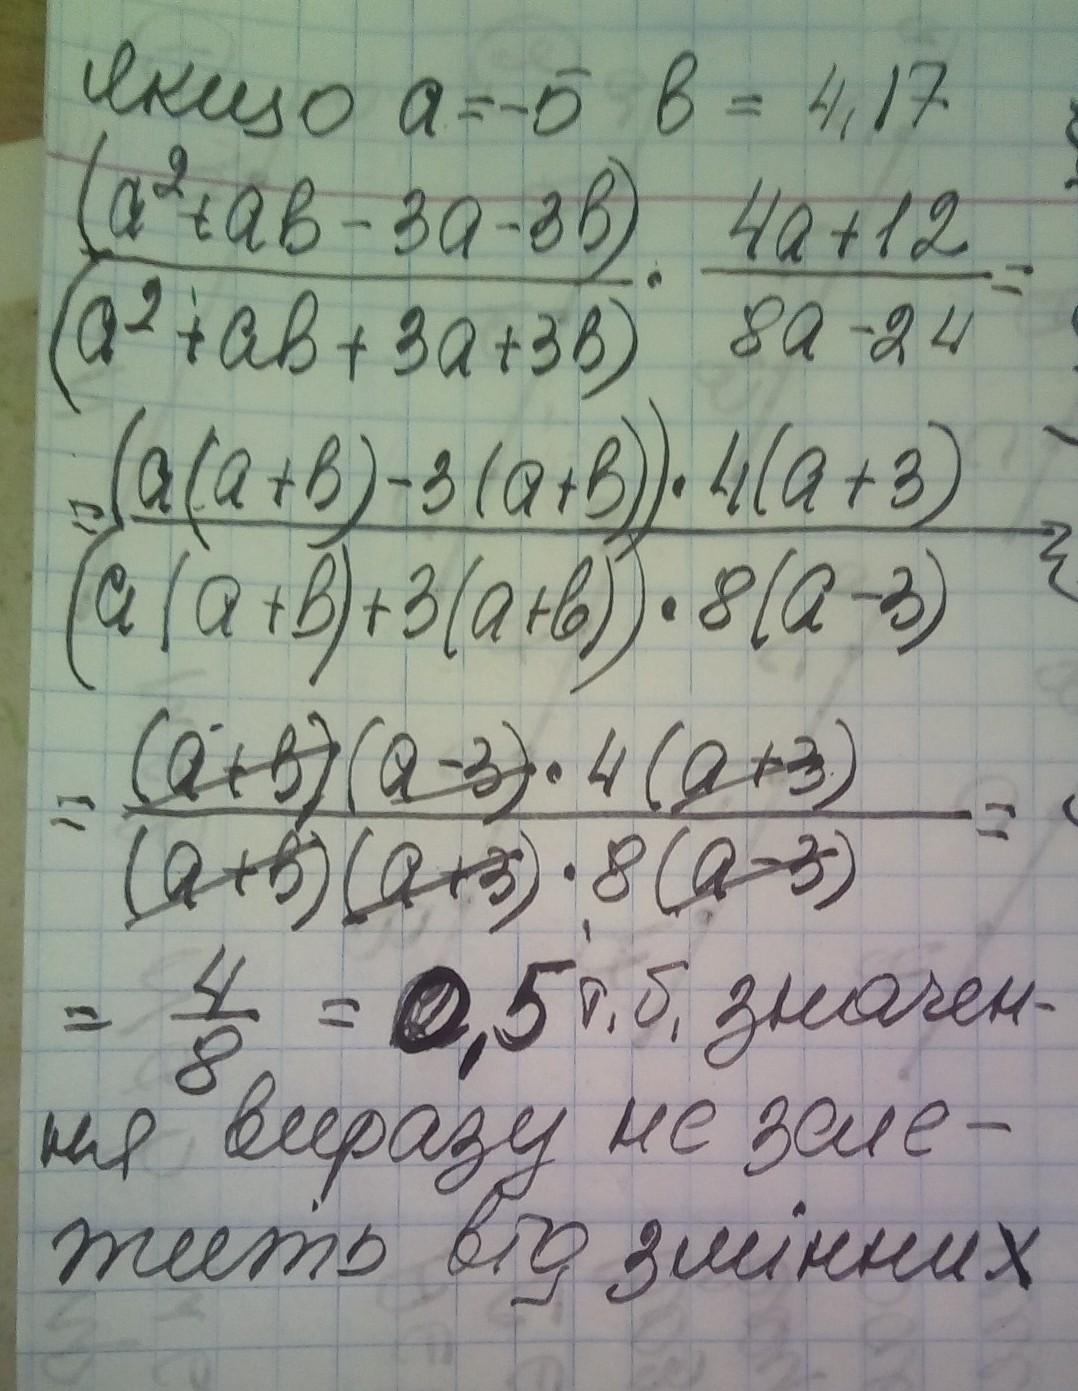 Якщо a = -5 в = 4,17
(a² + ав - 3a - 3в) / (a² + ав + 3a + 3в) · (4a + 12) / (8a - 24) =
= (a(a + в) - 3(a + в)) · 4(a + 3) / (a(a + в) + 3(a + в)) · 8(a - 3)
= (a + в)(a - 3) · 4(a + 3) / (a + в)(a + 3) · 8(a - 3) =
= 4/8 = 0,5 т.б. значен-
ня виразу не зале-
жить від змінних